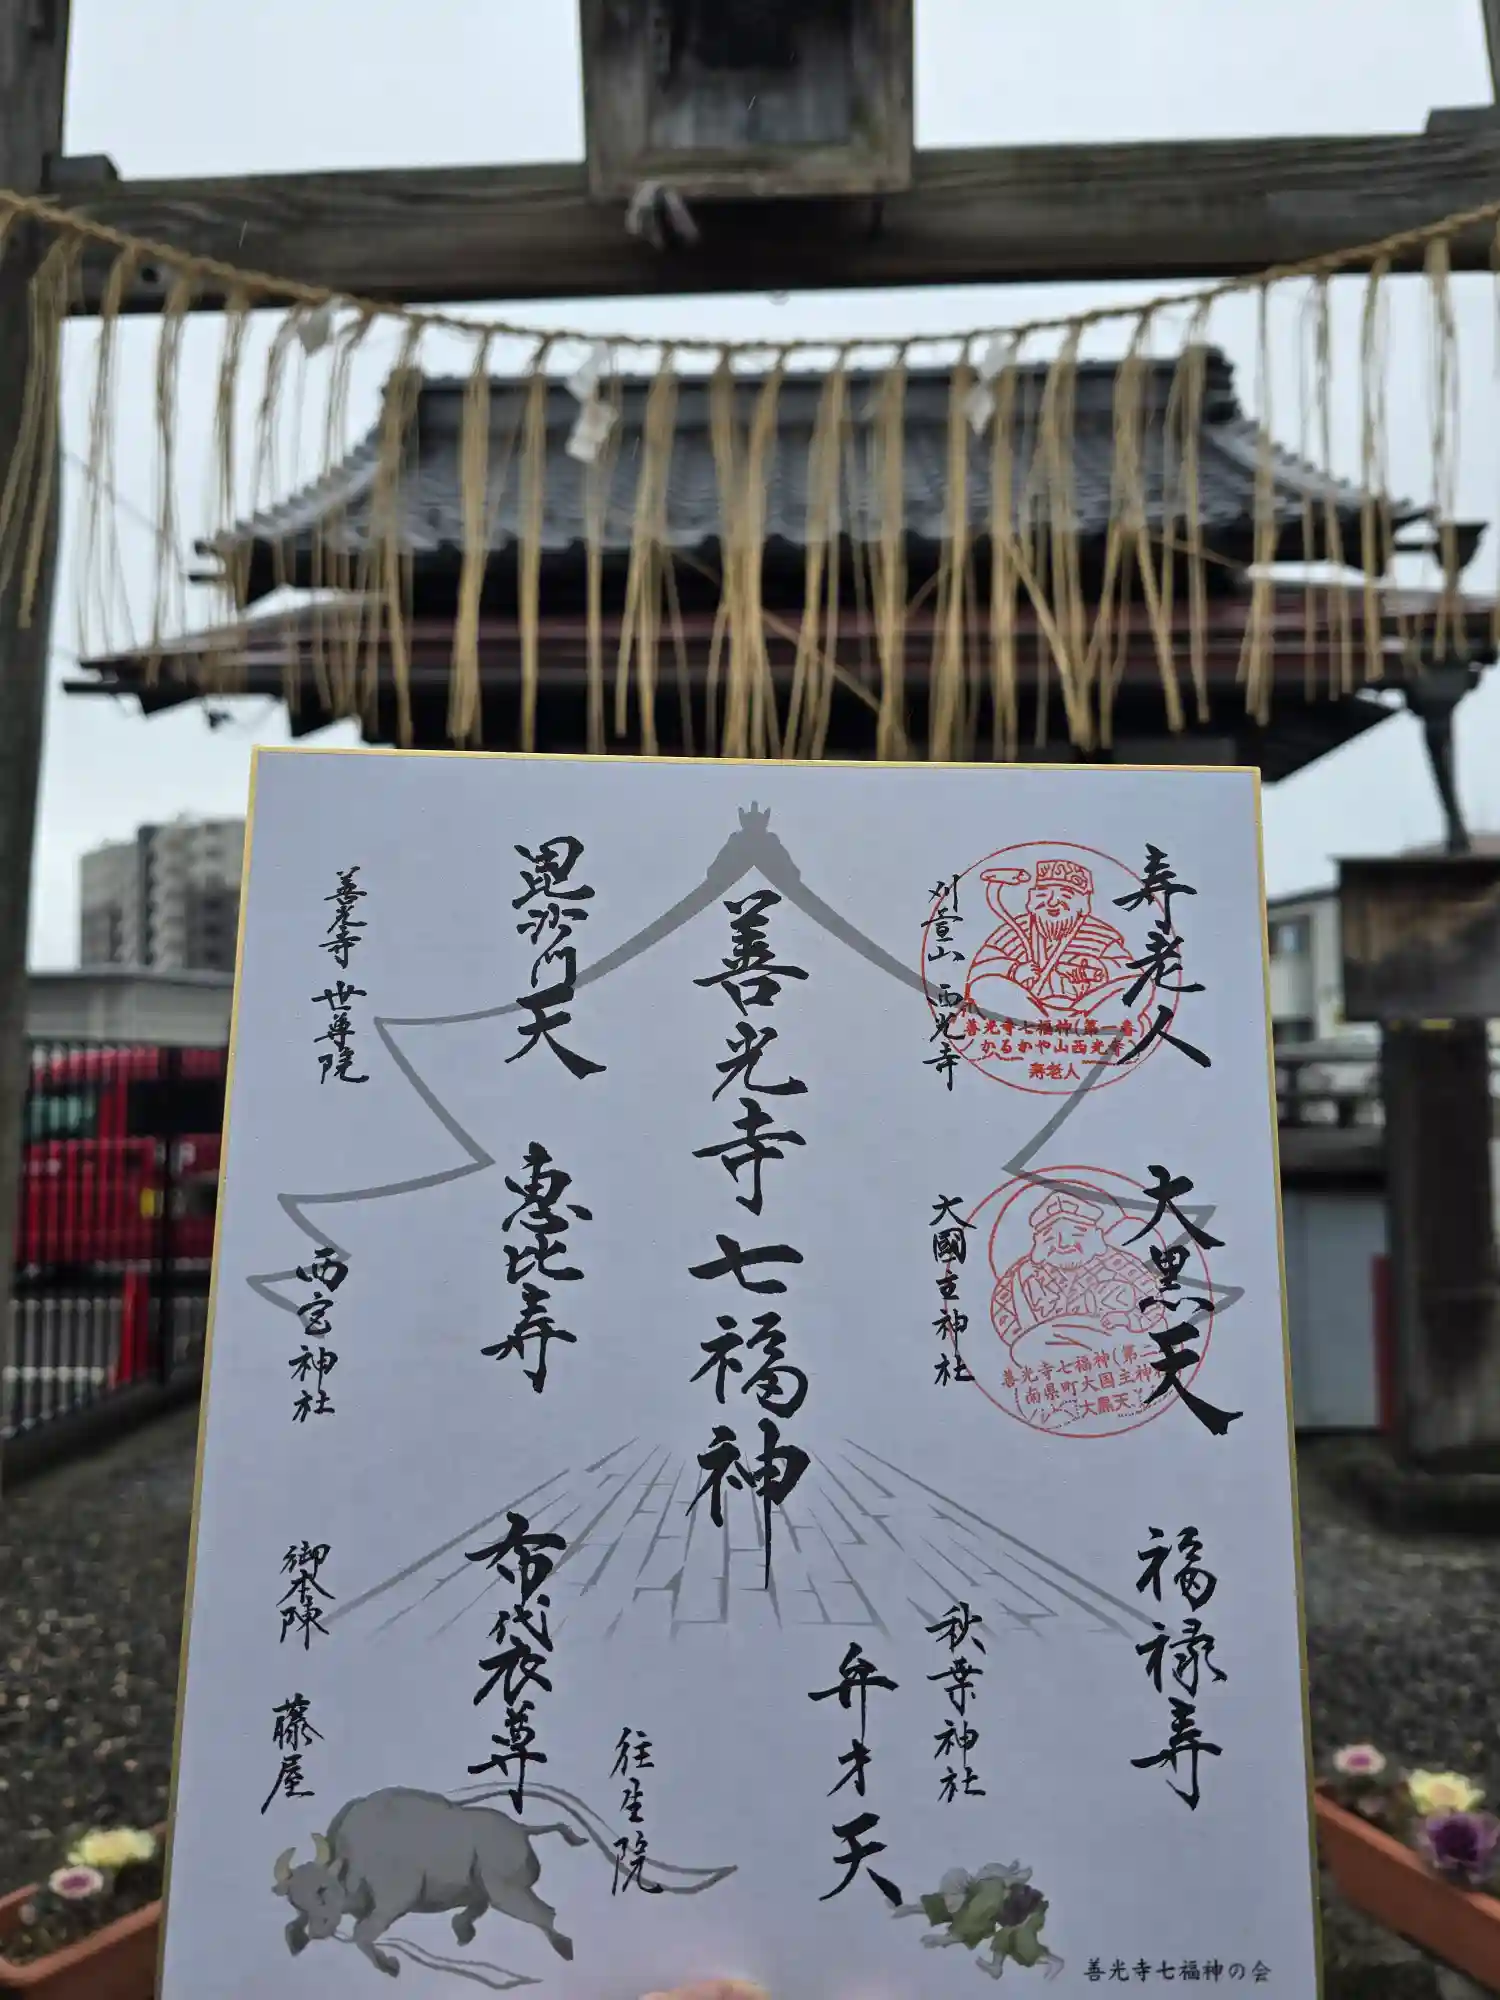 善光寺七福神
寿老人
刈萱山 西光寺
善光寺七福神(第一番
かるかや山西光寺
寿老人
大黒天
大國主神社
善光寺七福神(第二
南県町大国主神社
大黒天
福禄寿
秋葉神社
弁才天
往生院
毘沙門天
善光寺 世尊院
恵比寿
西宮神社
布袋尊
御本陣 藤屋
善光寺七福神の会